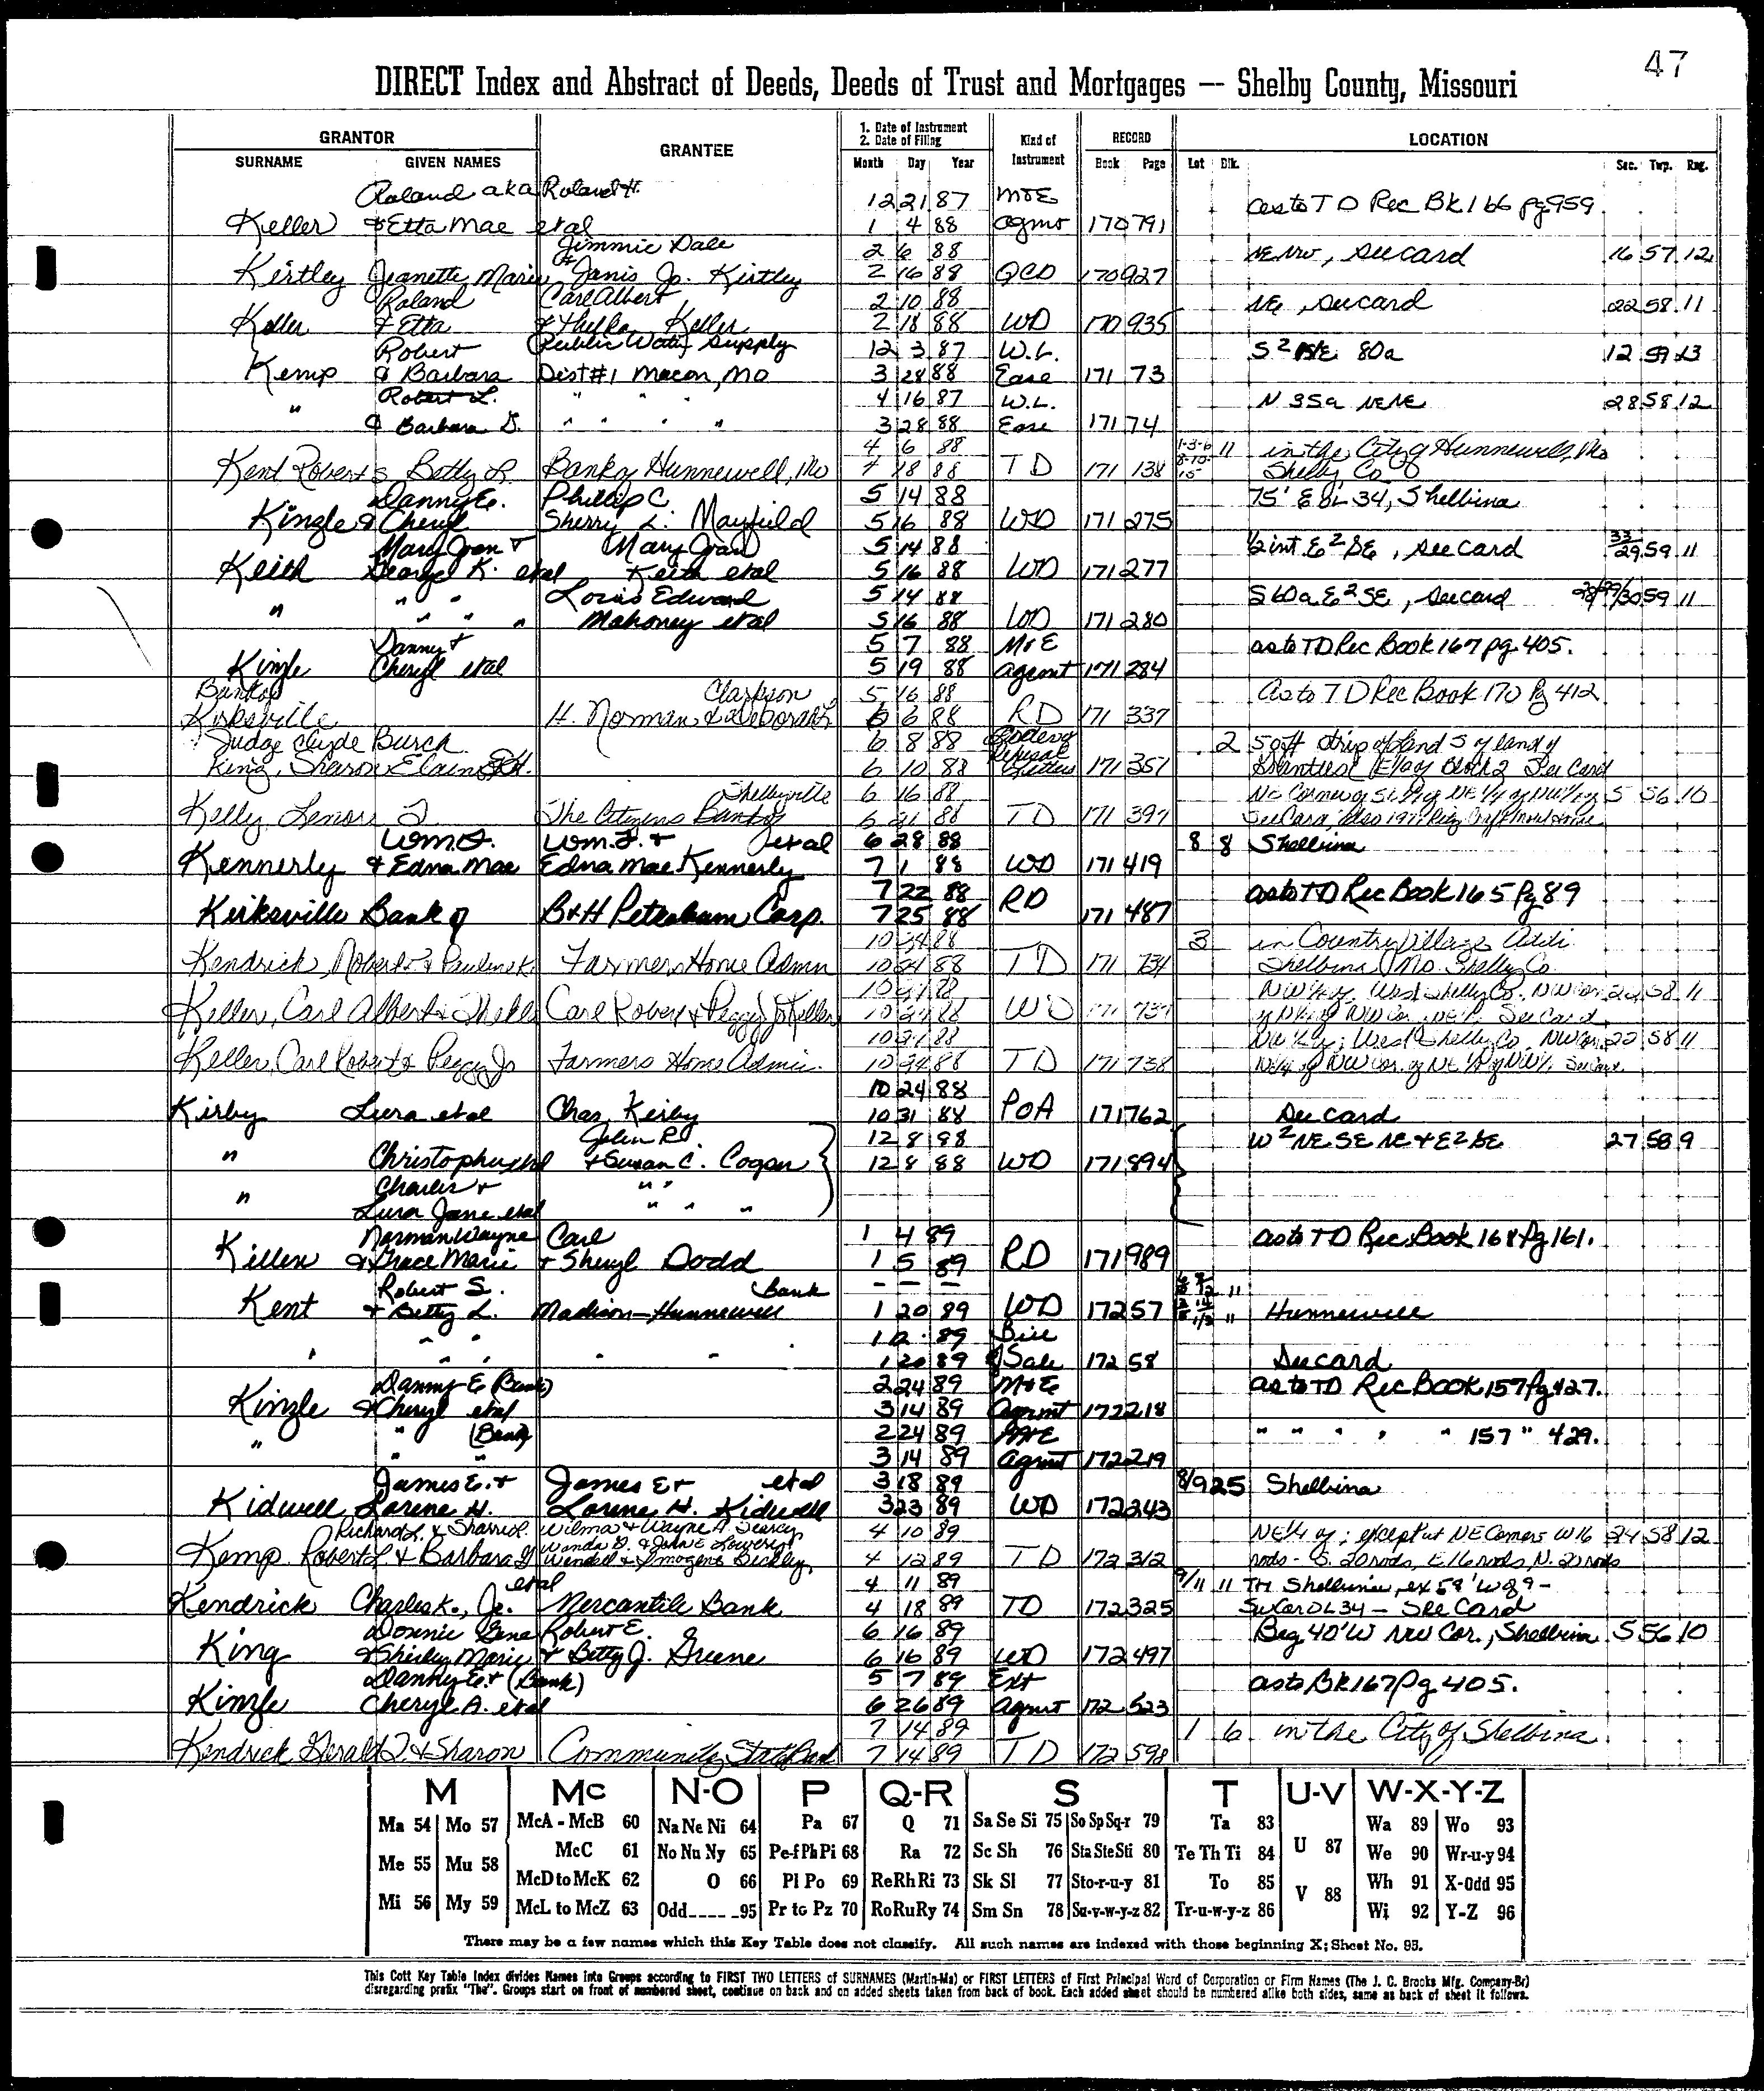 47
DIRECT Index and Abstract of Deeds, Deeds of Trust and Mortgages — Shelby County, Missouri
GRANTOR GRANTEE 1. Date of Instrument 2. Date of Filing Kind of Instrument RECORD LOCATION
SURNAME GIVEN NAMES Month Day Year Book Page Lot Blk. Sec. Twp. Rng.
Roland aka Roland H. 12 21 87 M&E as to TD Rec Bk 166 pg 959
Keller & Etta Mae etal 1 4 88 Agmt 170 791
Jimmie Dale 2 6 88 NE NW, See card 16 57 12
Kirtley Jeanette Marie & Janis Jo. Kirtley 2 16 88 QCD 170 927
Roland Carl Albert 2 10 88 NE, See card 22 58 11
Keller & Etta & Thelka Keller 2 18 88 WD 170 935
Robert Public Water Supply 12 3 87 W.L. S 2 NE 80a 12 59 13
Kemp & Barbara Dist #1 Macon, Mo 3 28 88 Ease 171 73
" Robert L. " " " 4 16 87 W.L. N 35a NENE 28 58 12
& Barbara G. " " " " 3 28 88 Ease 171 74
4 6 88 1-3-6 11 in the City of Hunnewell, Mo
Kent Robert S Betty L. Bank of Hunnewell, Mo 4 18 88 TD 171 138 8-10-15 Shelby Co
Danny E. Phillip C. 5 14 88 75' E OL 34, Shelbina
Kinzle & Cheryl Sherry L. Mayfield 5 16 88 WD 171 275
Mary Joan & Mary Joan 5 14 88 1/2 int. E2 SE, See card 33 29 59 11
Keith George K. etal Keith etal 5 16 88 WD 171 277
" " " Louis Edward 5 14 88 S 60a E2 SE, See card 30 59 11
" " Mahoney etal 5 16 88 WD 171 280
Danny & 5 7 88 M&E as to TD Rec Book 167 pg 405.
Kinzle Cheryl etal 5 19 88 Agmt 171 284
Bank of Clarkson 5 16 88 As to TD Rec Book 170 Pg 412
Kirksville H. Norman & Deborah L 6 6 88 RD 171 337
Judge Clyde Burch 6 8 88 2 50 ft strip of land S of land of
King, Sharon Elaine 6 10 88 171 351 Grantees Block 2 See Card
Shelbyville 6 16 88 NE Corner of NE 1/4 of NW 1/4 5 56 10
Kelly Lenora The Citizens Bank of 6 21 88 TD 171 397 See Card, also 1971
Wm. F. Wm. F. & etal 6 28 88 8 8 Shelbina
Kennerly & Edna Mae Edna Mae Kennerly 7 1 88 WD 171 419
7 22 88 as to TD Rec Book 165 Pg 89
Kirksville Bank of B&H Petroleum Corp. 7 25 88 RD 171 487
10 24 88 3 in Country Village Addi
Kendrick, Robert & Pauline K. Farmers Home Admn 10 24 88 TD 171 734 Shelbina, Mo. Shelby Co.
10 21 88 NW 1/4 of, West Shelby Co. NW Cor. 22 58 11
Keller, Carl Albert & Carl Robert & Peggy Jo Keller 10 24 88 WD 171 737 See Card
10 21 88 NW 1/4 of, West Shelby Co. NW Cor. 22 58 11
Keller, Carl Robert & Peggy Jo Farmers Home Admin. 10 24 88 TD 171 738 NE 1/4 of NW Cor. of NE 1/4 of NW 1/4 See Card
10 24 88
Kirby Lura etal Chas Kirby 10 31 88 POA 171 762 See card
John R 12 8 88 W2 NE SE NE & E2 SE 27 58 9
" Christopher etal & Susan C. Cogan 12 8 88 WD 171 894
" Charles & " "
Lura Jane etal " " "
Norman Wayne Carl 1 4 89 as to TD Rec Book 168 Pg 161.
Killen & Grace Marie & Sheryl Dodd 1 5 89 RD 171 989
Robert S. Bank — — —
Kent & Betty L. Madison-Hunnewell 1 20 89 WD 172 57 Hunnewell
" " 1 2 89 Bill
" " " " " 1 20 89 of Sale 172 58 See card
Danny E (Bank) 2 24 89 M&E as to TD Rec Book 157 Pg 427.
Kinzle & Cheryl etal 3 14 89 Agrmt 172 218
" " (Bank) 2 24 89 M&E " " " " " 157 " 429.
" " 3 14 89 Agmt 172 219
James E. & James E & etal 3 18 89 8/9 25 Shelbina
Kidwell Lorene H. Lorene H. Kidwell 3 23 89 WD 172 243
Richard L. & Sharri L. Wilma & Wayne A. Searcy 4 10 89 NE 1/4 of; except at NE Corner W 16 24 58 12
Wanda D. & John E Lowery
Kemp Robert L & Barbara G Wendell & Imogene Bickley, 4 12 89 TD 172 312 rods - S. 20 rods, E 16 rods, N. 20 rods
etal 4 11 89 9/11 11 TH Shelbina, ex 58' W of 9 -
Kendrick Charles K., Jr. Mercantile Bank 4 18 89 TD 172 325 Sw Cor OL 34 - See Card
Donnie Gene Robert E. 6 16 89 Beg 40' W NW Cor., Shelbina 5 56 10
King & Shirley Marie & Betty J. Greene 6 16 89 WD 172 497
Danny E. & (Bank) 5 7 89 Ext as to Bk 167 Pg 405.
Kinzle Cheryl A. etal 6 26 89 Agmt 172 523
7 14 89 1 6 in the City of Shelbina
Kendrick Gerald T & Sharon Community State Bank 7 14 89 TD 172 598
M Mc N-O P Q-R S T U-V W-X-Y-Z
Ma 54 Mo 57 McA - McB 60 Na Ne Ni 64 Pa 67 Q 71 Sa Se Si 75 So Sp Sq-r 79 Ta 83 U 87 Wa 89 Wo 93
Me 55 Mu 58 McC 61 No Nu Ny 65 Pe-f Ph Pi 68 Ra 72 Sc Sh 76 Sta Ste Sti 80 Te Th Ti 84 We 90 Wr-u-y 94
McD to McK 62 O 66 Pl Po 69 Re Rh Ri 73 Sk Sl 77 Sto-r-u-y 81 To 85 V 88 Wh 91 X-Odd 95
Mi 56 My 59 McL to McZ 63 Odd____95 Pr to Pz 70 Ro Ru Ry 74 Sm Sn 78 Su-v-w-y-z 82 Tr-u-w-y-z 86 Wi 92 Y-Z 96
There may be a few names which this Key Table does not classify. All such names are indexed with those beginning X; Sheet No. 95.
This Cott Key Table Index divides Names into Groups according to FIRST TWO LETTERS of SURNAMES (Martin-Ma) or FIRST LETTERS of First Principal Word of Corporation or Firm Names (The J. C. Brooks Mfg. Company-Br)
disregarding prefix "The". Groups start on front of numbered sheet, continue on back and on added sheets taken from back of book. Each added sheet should be numbered alike both sides, same as back of sheet it follows.